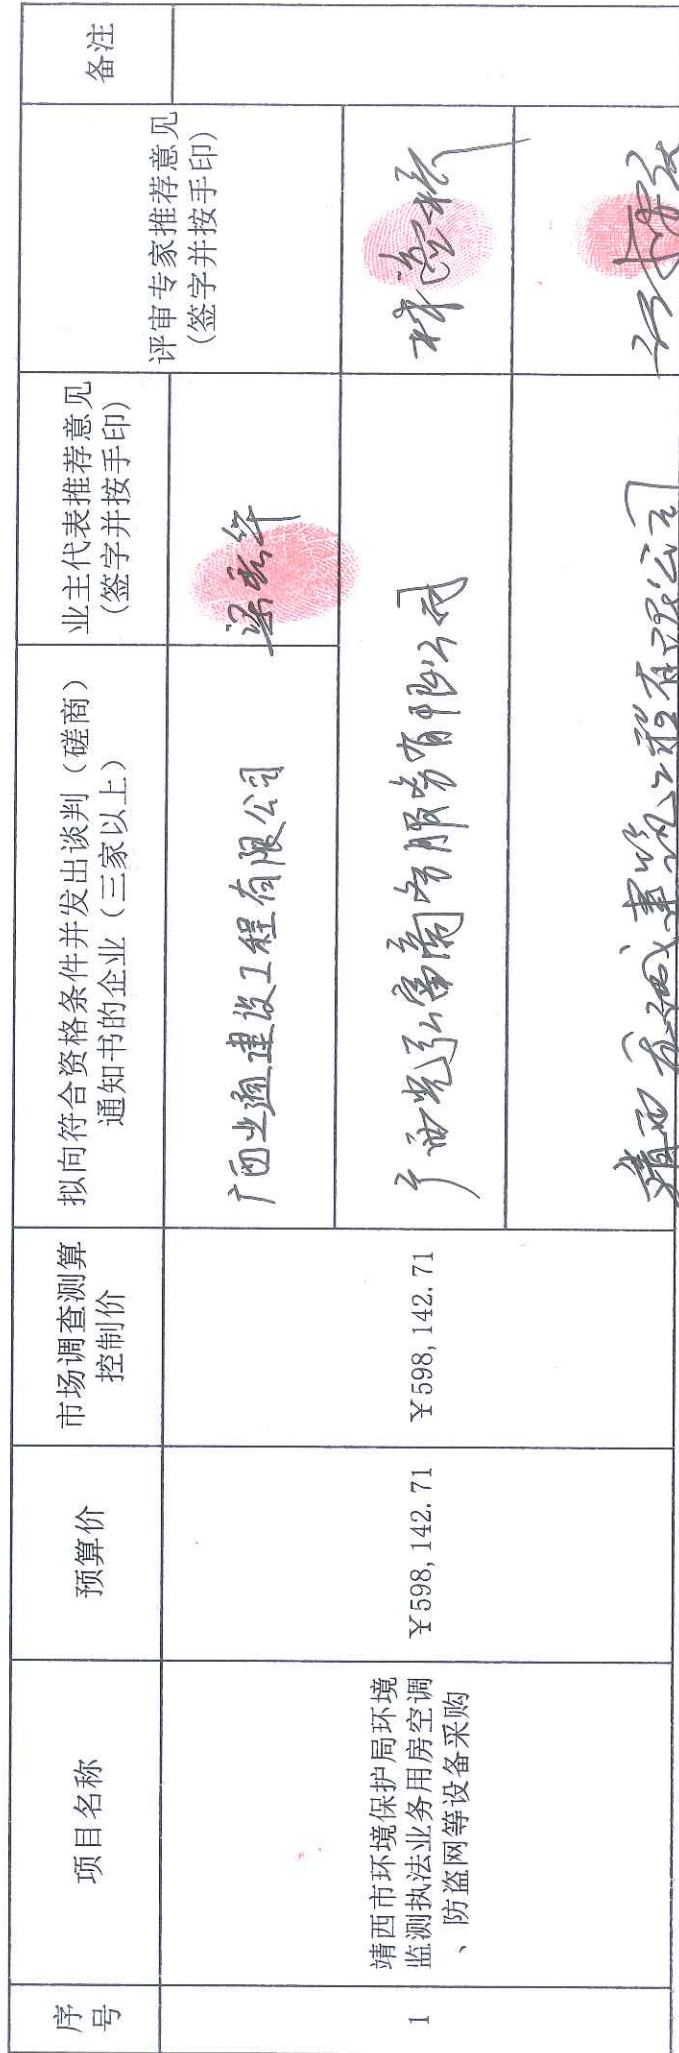 序
号
项目名称
预算价
市场调查测算
控制价
拟向符合资格条件并发出谈判（磋商）
通知书的企业（三家以上）
业主代表推荐意见
(签字并按手印)
评审专家推荐意见
(签字并按手印)
备注
1
靖西市环境保护局环境
监测执法业务用房空调
、防盗网等设备采购
￥598,142.71
￥598,142.71
广西业通建设工程有限公司
广西 弘富商务服务有限公司
靖西 诚建筑工程有限公司